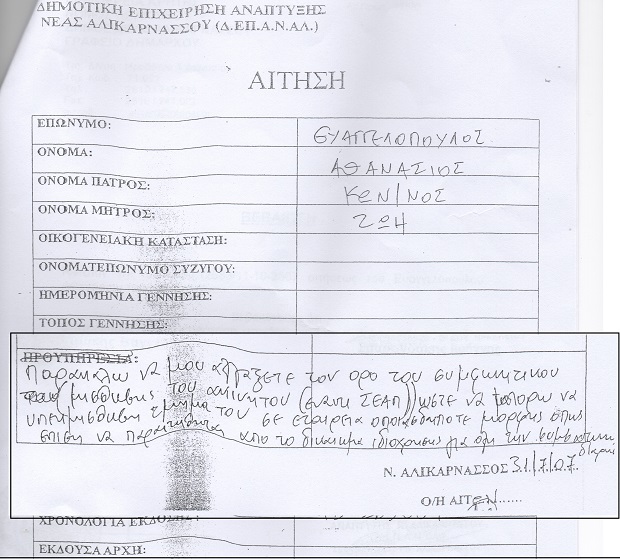 ΔΗΜΟΤΙΚΗ ΕΠΙΧΕΙΡΗΣΗ ΑΝΑΠΤΥΞΗΣ
ΝΕΑΣ ΑΛΙΚΑΡΝΑΣΣΟΥ (Δ.ΕΠ.Α.Ν.ΑΛ.)
ΑΙΤΗΣΗ
ΕΠΩΝΥΜΟ: ΕΥΑΓΓΕΛΟΠΟΥΛΟΣ
ΟΝΟΜΑ: ΑΘΑΝΑΣΙΟΣ
ΟΝΟΜΑ ΠΑΤΡΟΣ: ΚΩΝ/ΝΟΣ
ΟΝΟΜΑ ΜΗΤΡΟΣ: ΖΩΗ
ΟΙΚΟΓΕΝΕΙΑΚΗ ΚΑΤΑΣΤΑΣΗ:
ΟΝΟΜΑΤΕΠΩΝΥΜΟ ΣΥΖΥΓΟΥ:
ΗΜΕΡΟΜΗΝΙΑ ΓΕΝΝΗΣΗΣ:
ΤΟΠΟΣ ΓΕΝΝΗΣΗΣ:
ΠΡΟΥΠΗΡΕΣΙΑ:
Παρακαλω να μου αλλαξετε τον ορο του
μισθωσης του ακινητου (εναντι ΣΕΑΠ) ωστε να μπορω να
τμημα του σε εταιρεια οποιασδηποτε μορφης οπως
επισης να απο το δικαιωμα ιδιοχρησης για ολη την
Ν. ΑΛΙΚΑΡΝΑΣΣΟΣ 31/7/07
Ο/Η ΑΙΤ
ΧΡΟΝΟΛΟΓΙΑ ΕΚΔΟΣΗΣ:
ΕΚΔΟΥΣΑ ΑΡΧΗ: